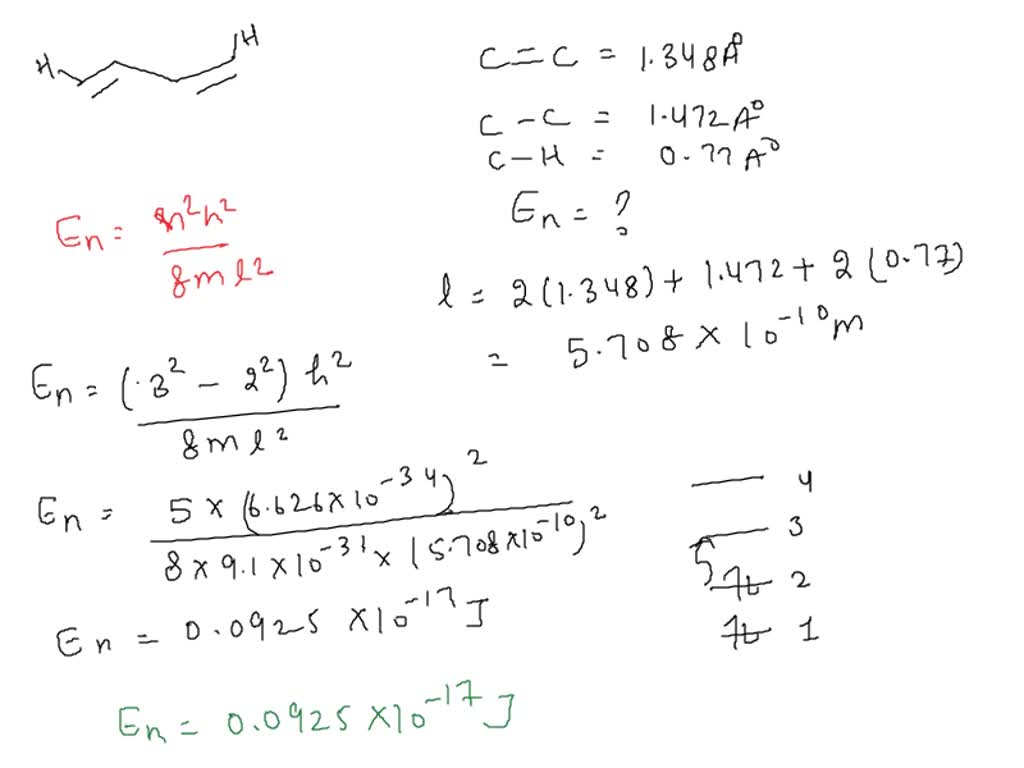 H H
C=C = 1.348 A°
C-C = 1.472 A°
C-H = 0.77 A°
En = ?
En = n²h² / 8ml²
l = 2(1.348) + 1.472 + 2(0.77)
= 5.708 × 10⁻¹⁰ m
En = (3² - 2²) h² / 8ml²
En = 5 × (6.626×10⁻³⁴)² / 8 × 9.1 × 10⁻³¹ × (5.708×10⁻¹⁰)²
En = 0.0925 × 10⁻¹⁷ J
4
3
2
1
En = 0.0925 × 10⁻¹⁷ J